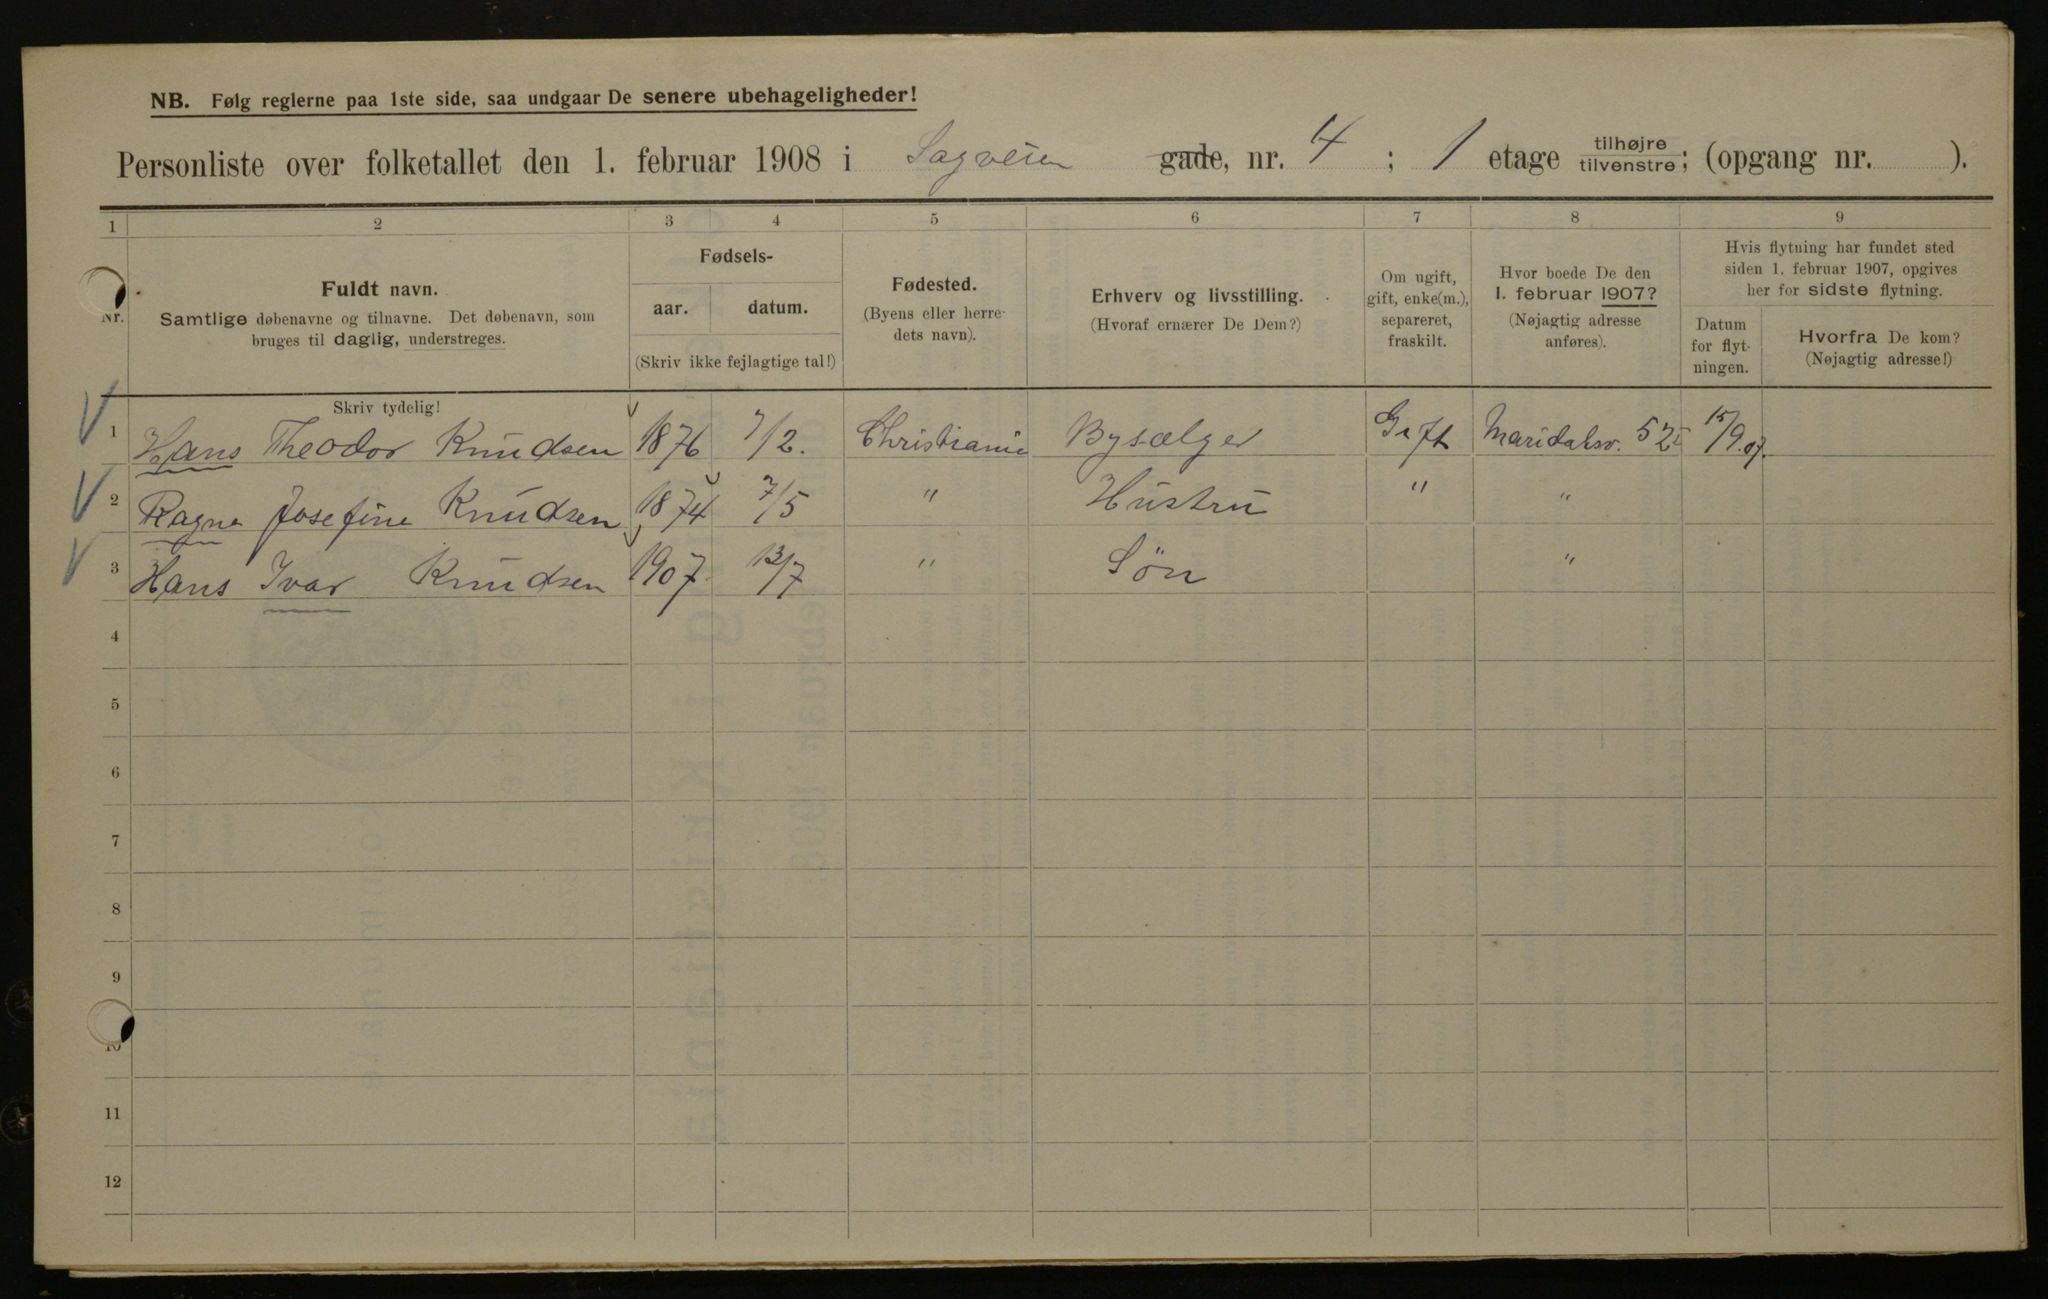 NB. Følg reglerne paa 1ste side, saa undgaar De senere ubehageligheder!
Personliste over folketallet den 1. februar 1908 i Sagveien gade, nr. 4 ; 1 etage tilhøjre tilvenstre; (opgang nr. ).
1 2 3 4 5 6 7 8 9
Nr.
Fuldt navn.
Samtlige døbenavne og tilnavne. Det døbenavn, som
bruges til daglig, understreges.
Fødsels-
aar. datum.
(Skriv ikke fejlagtige tal!)
Fødested.
(Byens eller herre-
dets navn).
Erhverv og livsstilling.
(Hvoraf ernærer De Dem?)
Om ugift,
gift, enke(m.),
separeret,
fraskilt.
Hvor boede De den
1. februar 1907?
(Nøjagtig adresse
anføres).
Hvis flytning har fundet sted
siden 1. februar 1907, opgives
her for sidste flytning.
Datum
for flyt-
ningen.
Hvorfra De kom?
(Nøjagtig adresse!)
Skriv tydelig!
1 Hans Theodor Knudsen 1876 7/2. Christiania Bysælger Gift Maridalsv. 52 15/9.07.
2 Ragna Josefine Knudsen 1874 7/5 " Hustru " "
3 Hans Ivar Knudsen 1907 13/7 " Søn "
4
5
6
7
8
9
10
11
12